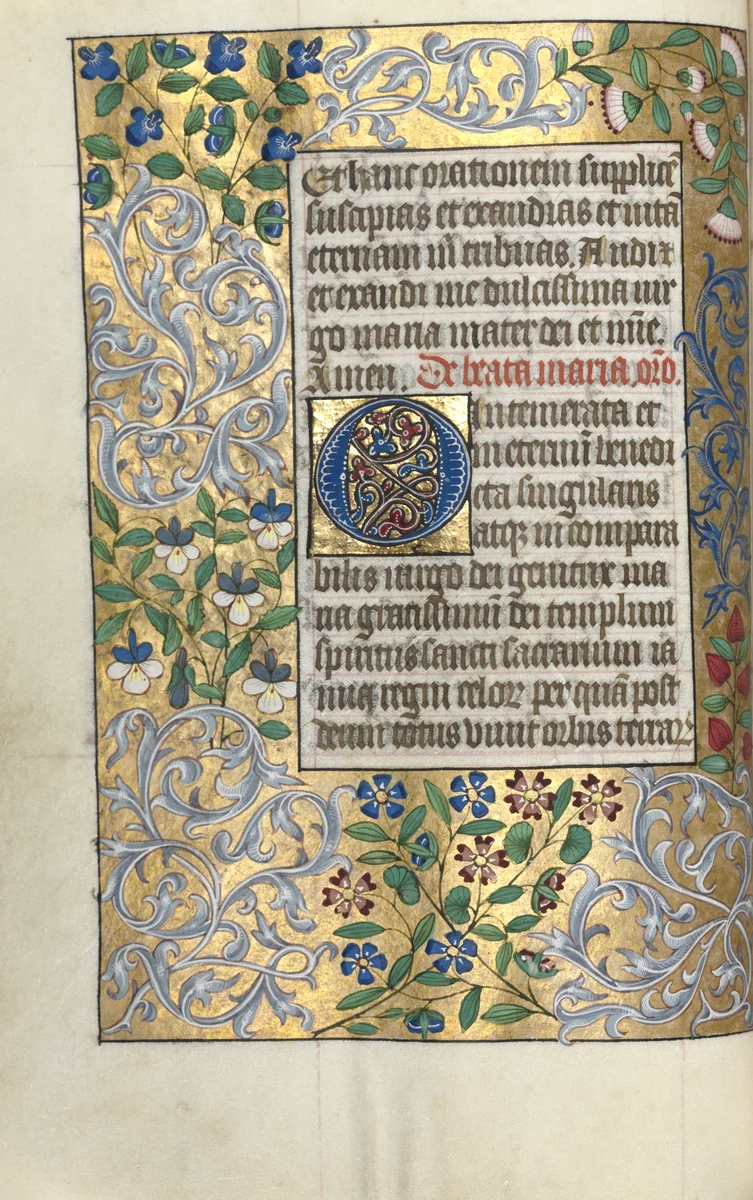 Et hanc orationem supplicē
suscipias et exaudias et uitā
eternam m̄ tribuas. Audi
et exaudi me dulcissima uir
go maria mater dei et mīe
Amen. De beata maria orō.
O intemerata et
in eternū benedi
cta singularis
atqꝫ incompara
bilis uirgo dei genitrix ma
ria gratissimū dei templum
spiritus sancti sacrarium ia
nua regni celoꝝ per quā post
deum totus uiuit orbis terraꝝ